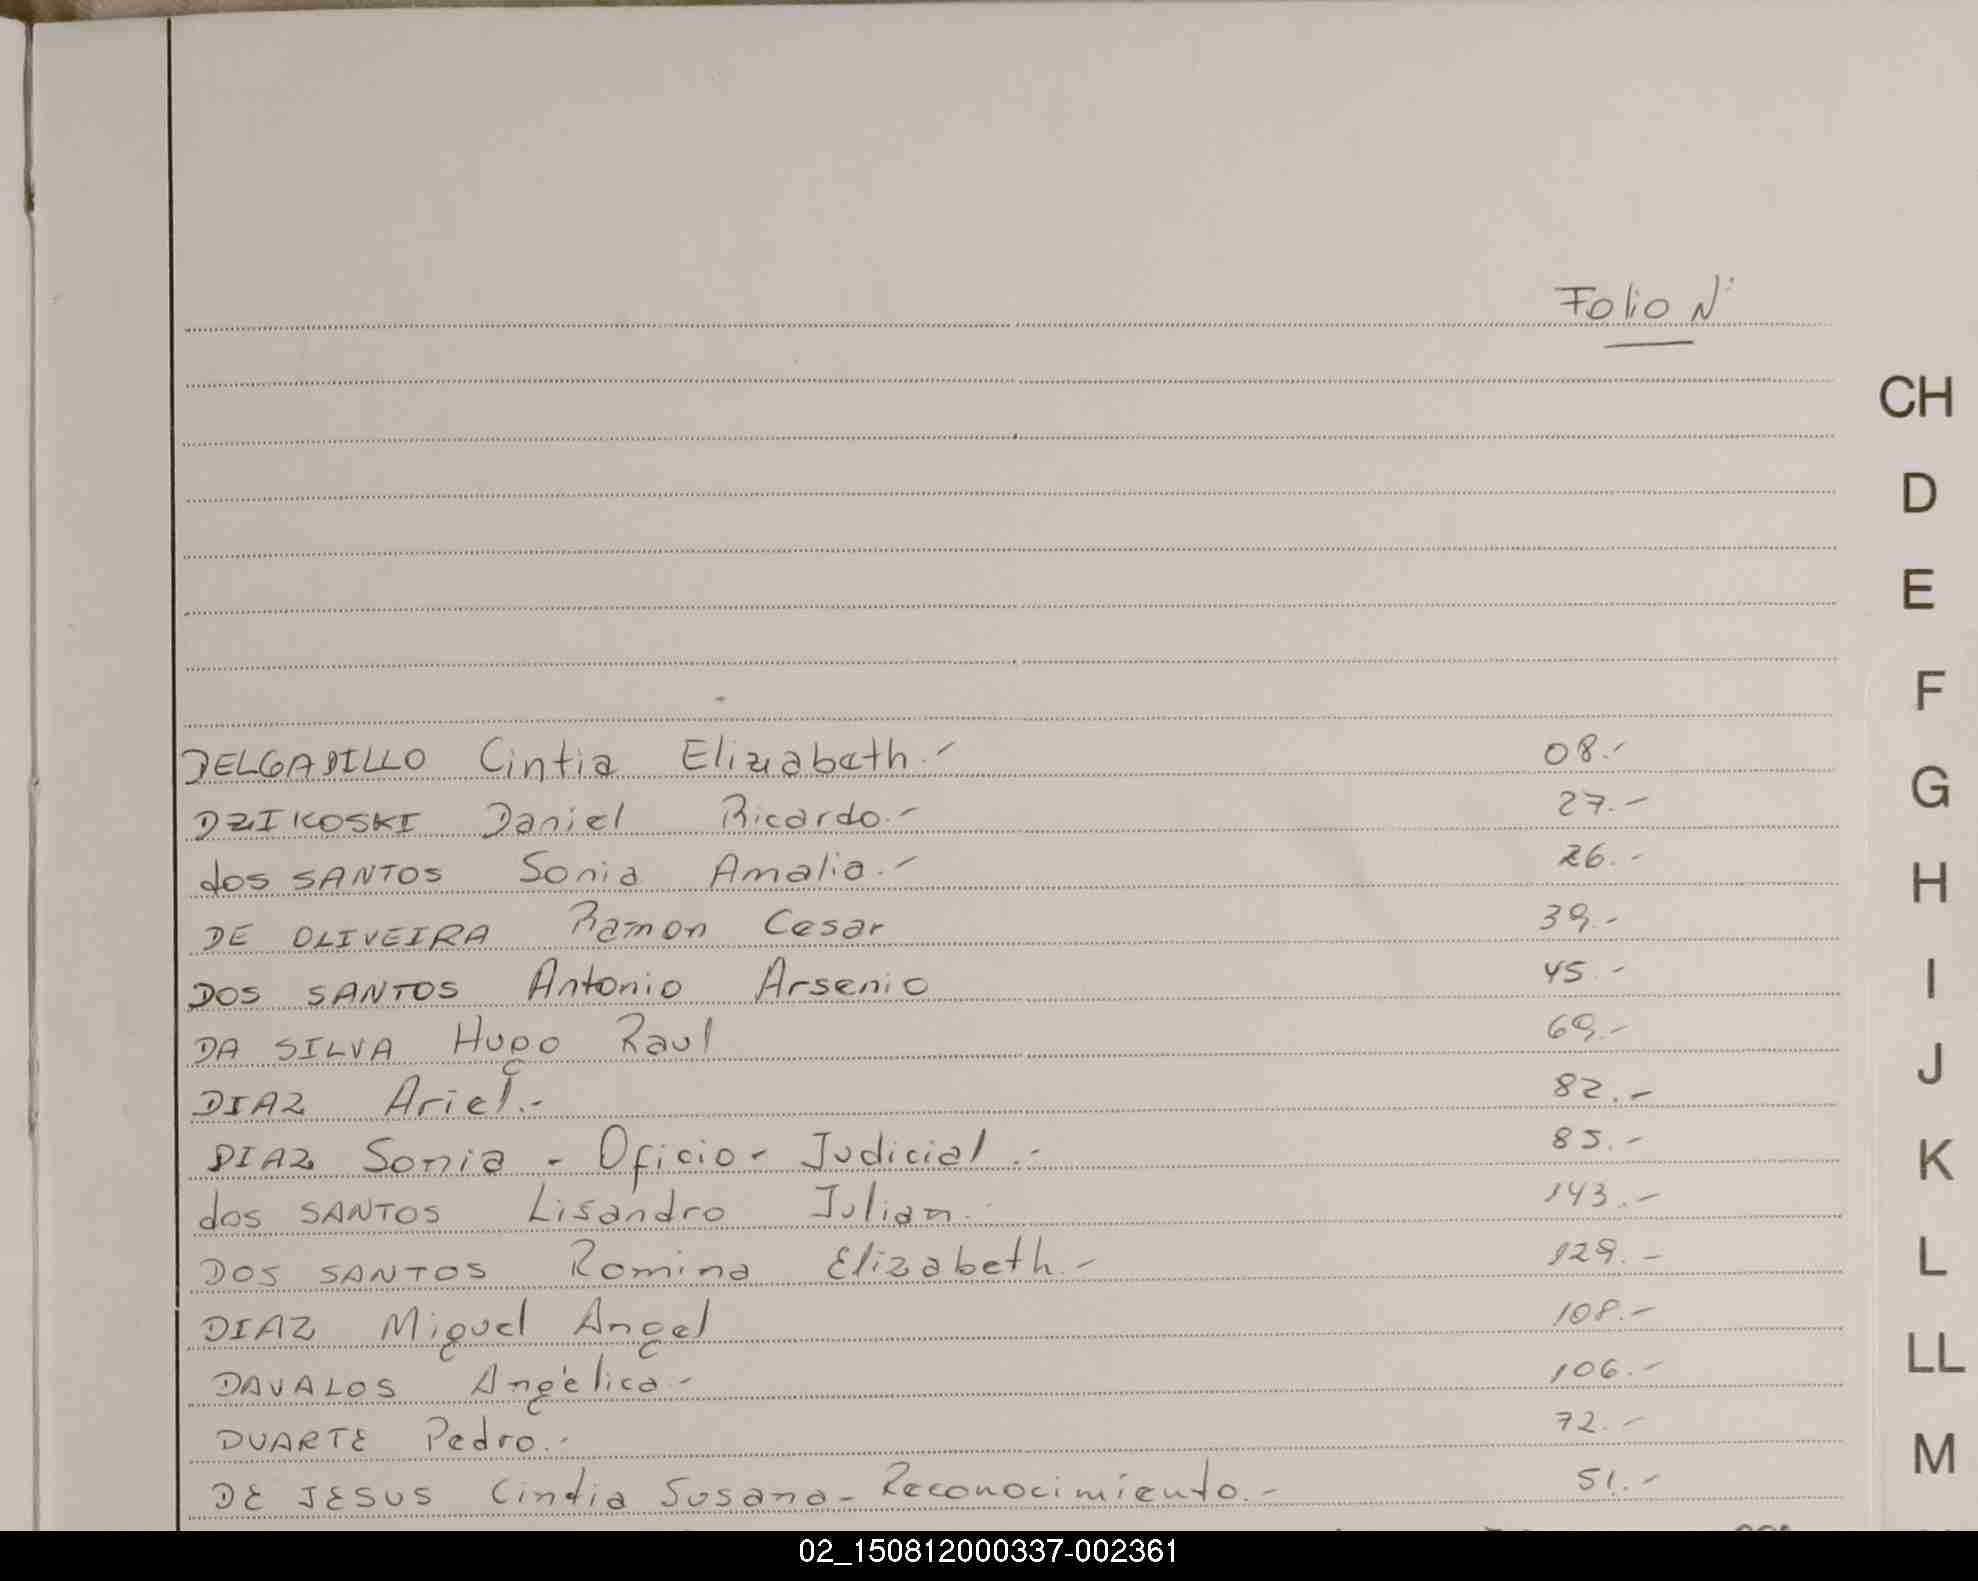 Folio N°
CH
D
E
F
DELGADILLO Cintia Elizabeth.- 08.-
G
DZIKOSKI Daniel Ricardo.- 27.-
dos SANTOS Sonia Amalia.- 26.-
H
DE OLIVEIRA Ramon Cesar 39.-
DOS SANTOS Antonio Arsenio 45.-
I
DA SILVA Hugo Raul 69.-
J
DIAZ Ariel.- 82.-
DIAZ Sonia - Oficio - Judicial.- 85.-
K
dos SANTOS Lisandro Julian. 143.-
L
DOS SANTOS Romina Elizabeth.- 129.-
DIAZ Miguel Angel 108.-
LL
DAVALOS Angélica.- 106.-
DUARTE Pedro.- 72.-
M
DE JESUS Cindia Susana - Reconocimiento.- 51.-
02_150812000337-002361